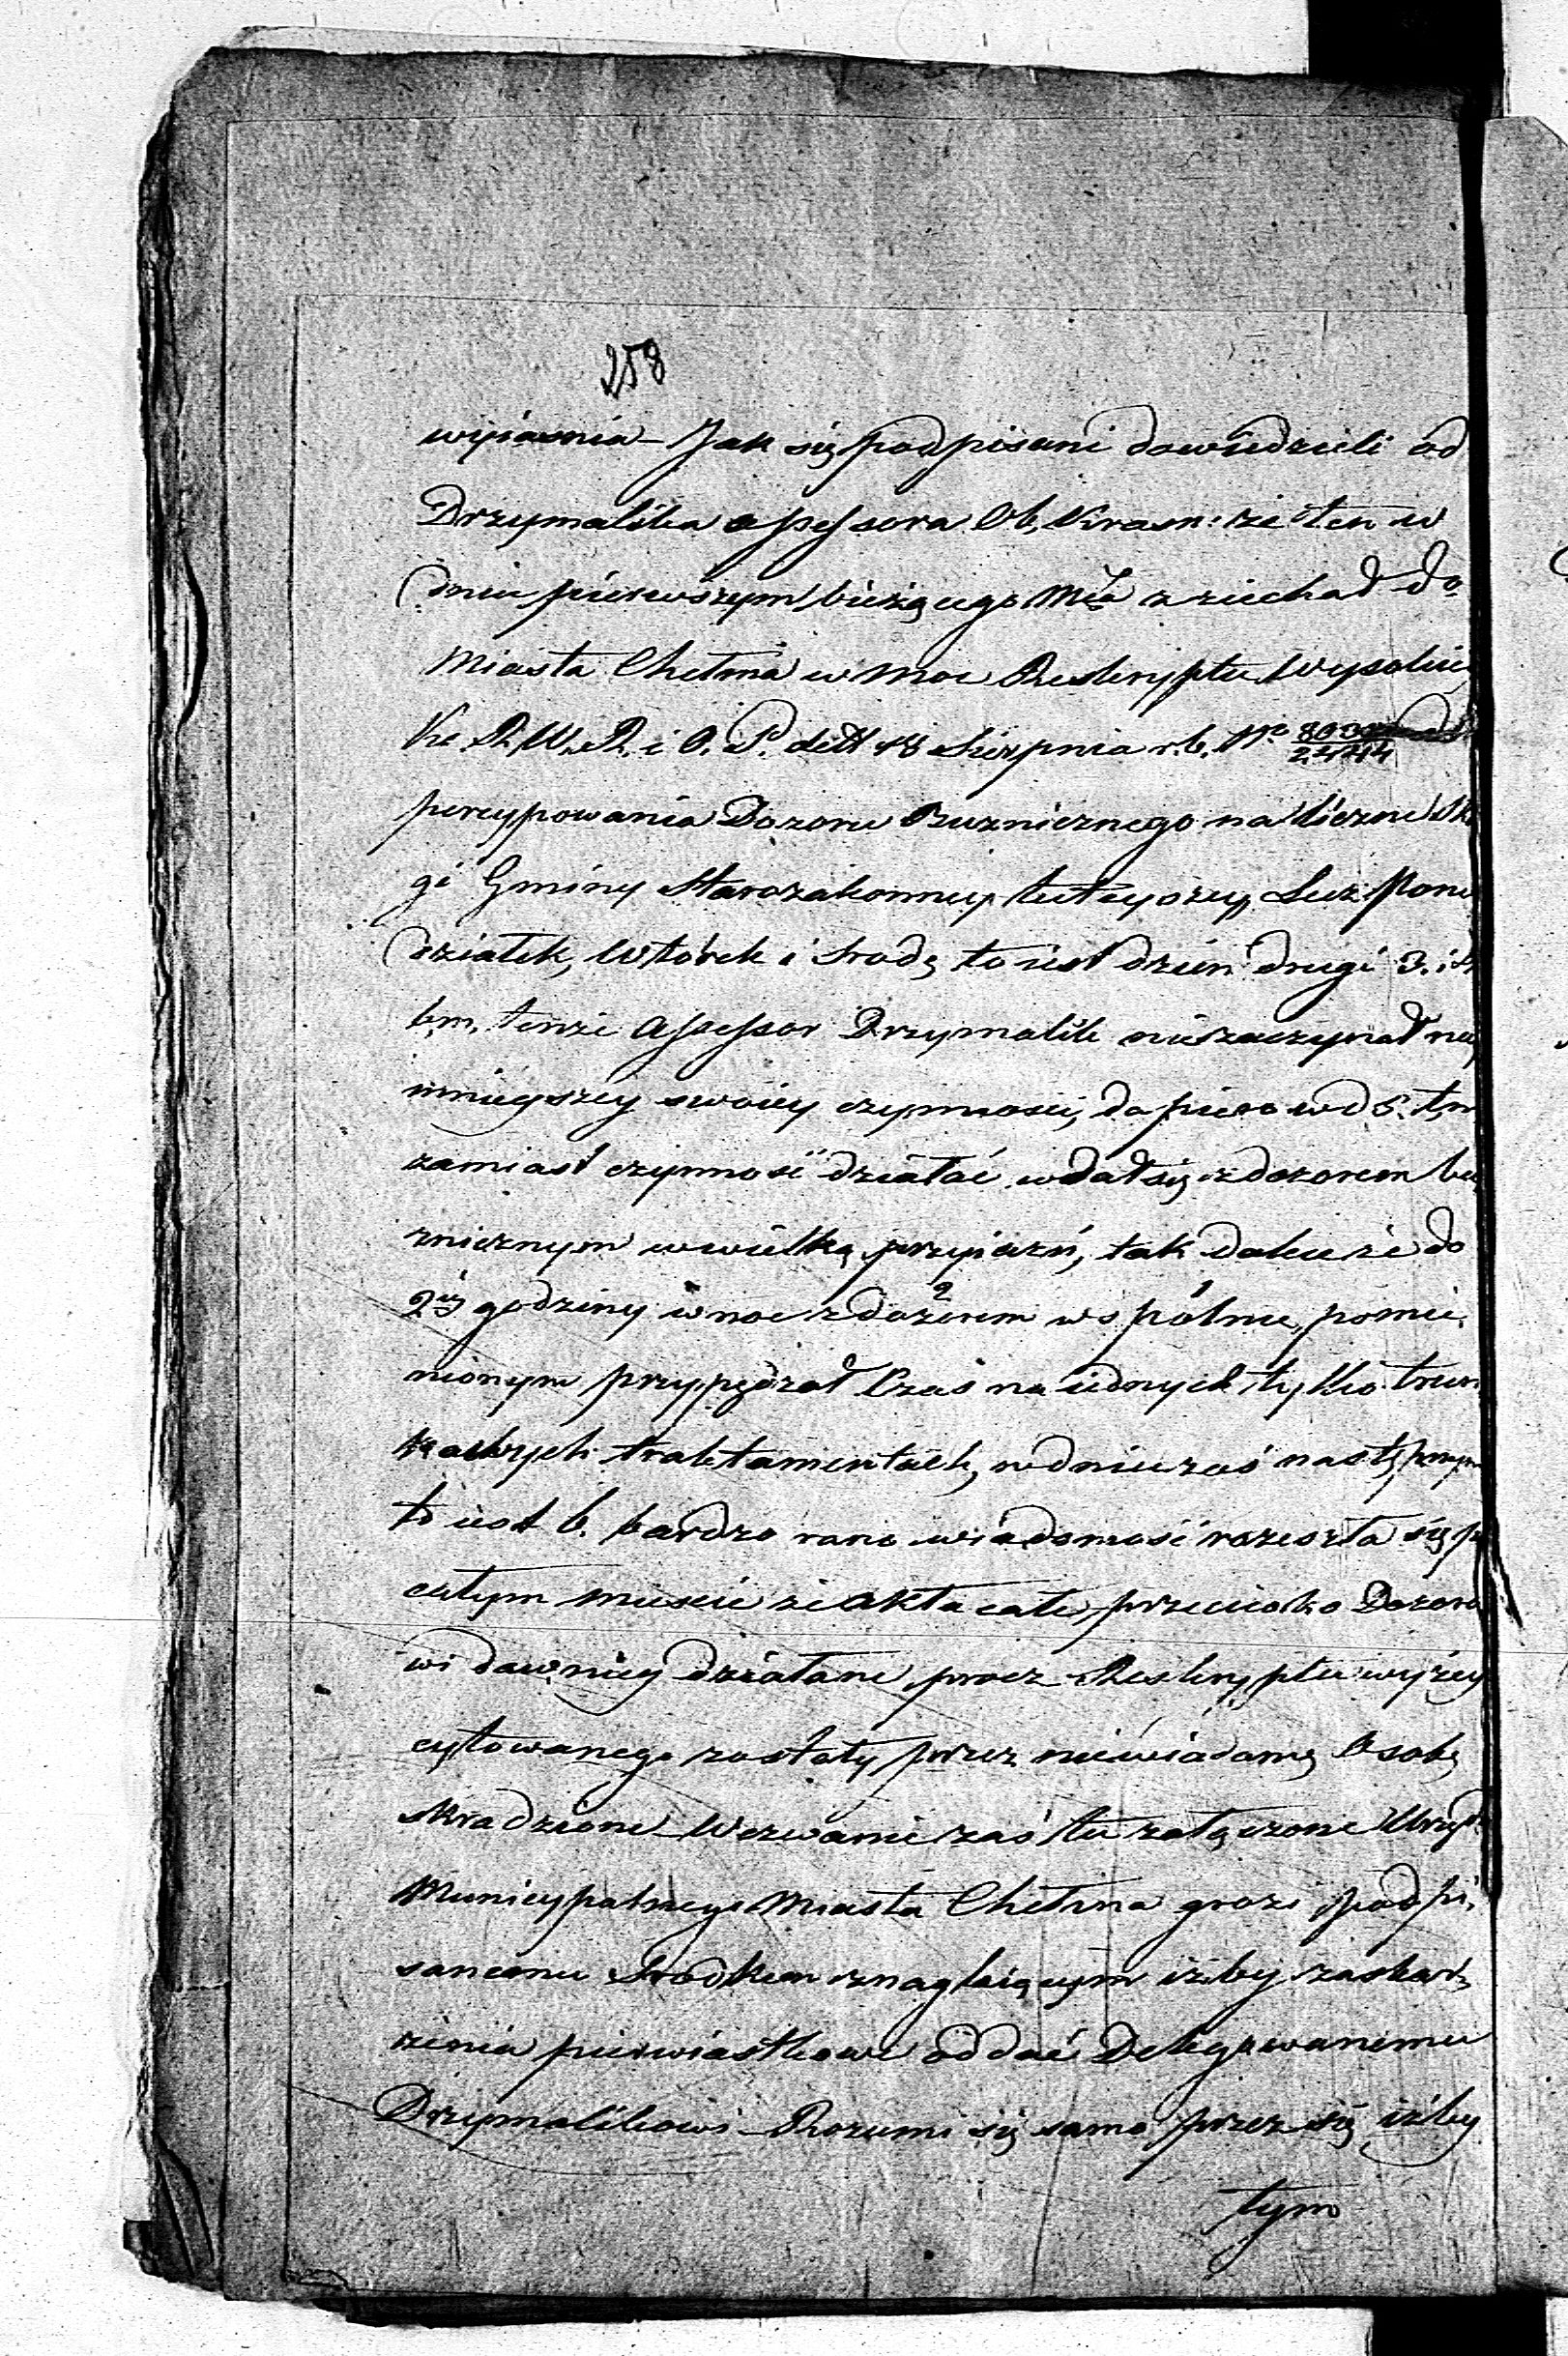 258
wyiaśnia – Jak się podpisani dowiedzieli od
Drzymalika assessora Ob. Krasn: że ten w
dniu pierwszym bieżącego Mca zziechał do
Miasta Chełma w moc Reskryptu Wysokiey
K. R. W. R. i O. P. ddt 18 Sierpnia r. b. No
percypowania Dozoru Buznicznego na liczne Ska
gi Gminy Starozakonney tuteyszey Lecz Ponie
działek, Wtórek i Srodę to iest dzien drugi 3. i 4
b. m. tenże Assessor Drzymalik nie zaczynał nay
mnieyszey swoiey czynnosci, dopiero w d 5. t. m
zamiast czynnosć działać wdał się z dozorem bu
znicznym w wielką przyiaźń, tak daleće że do
2iey godziny w noc z dozorem wspólnie pomie
nionym przypędzał Czas na iednych tylko trun
kowych traktamentach, w dniu zaś następnym
to iest 6. bardzo rano wiadomosć rozeszła się po
całym miescie że akta całe przeciwko Dozoro
wi dawniey działane procz Reskryptu wyżey
cytowanego zostały przez niewiadomą Osobę
skradzione – Wezwanie zaś tu załączone Urzędu
Municypalnego Miasta Chełma grozi podpi
sanemu srodkiem znaglaiącym iżby zaskar
żenia pierwiastkowe oddać Delegowanemu
Drzymalikowi – Rozumi się samo przez się iżby
tym